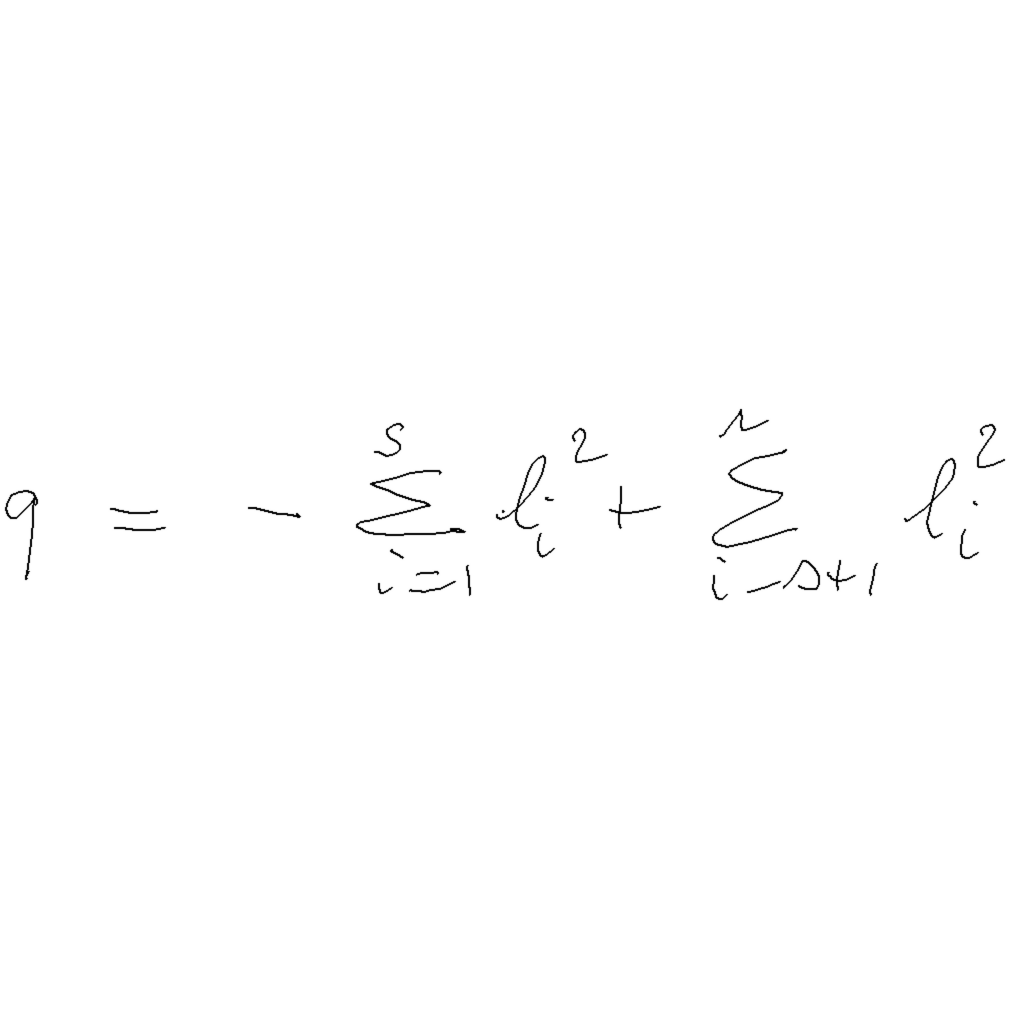 q = - \sum_{i=1}^{s} l_i^2 + \sum_{i-s+1}^{r} l_i^2